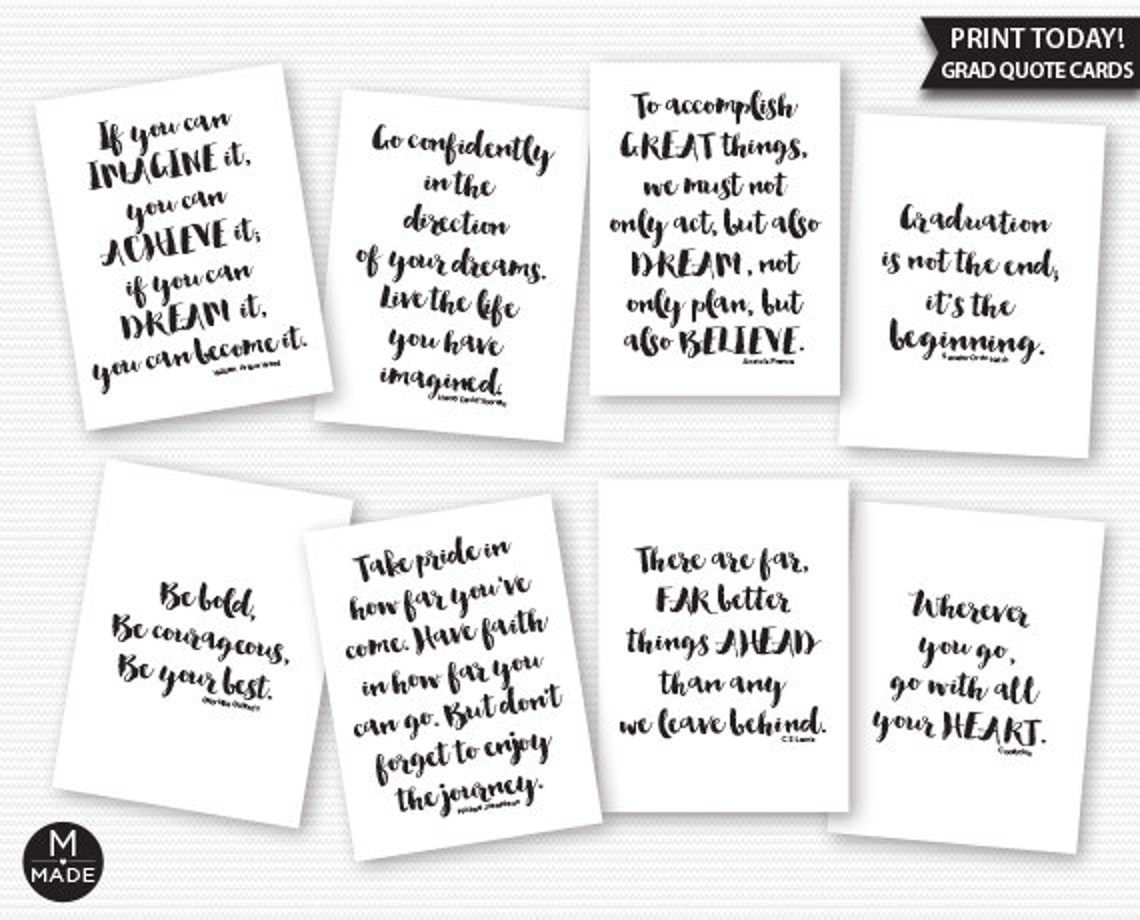 PRINT TODAY!
GRAD QUOTE CARDS
If you can
IMAGINE it,
you can
ACHIEVE it;
if you can
DREAM it,
you can become it.
William Arthur Ward
Go confidently
in the
direction
of your dreams.
Live the life
you have
imagined.
Henry David Thoreau
To accomplish
GREAT things,
we must not
only act, but also
DREAM, not
only plan, but
also BELIEVE.
Anatole France
Graduation
is not the end;
it's the
beginning.
Senator Orrin Hatch
Be bold,
Be courageous,
Be your best.
Take pride in
how far you've
come. Have faith
in how far you
can go. But don't
forget to enjoy
the journey.
Michael Josephson
There are far,
FAR better
things AHEAD
than any
we leave behind.
C S Lewis
Wherever
you go,
go with all
your HEART.
Confucius
M
MADE